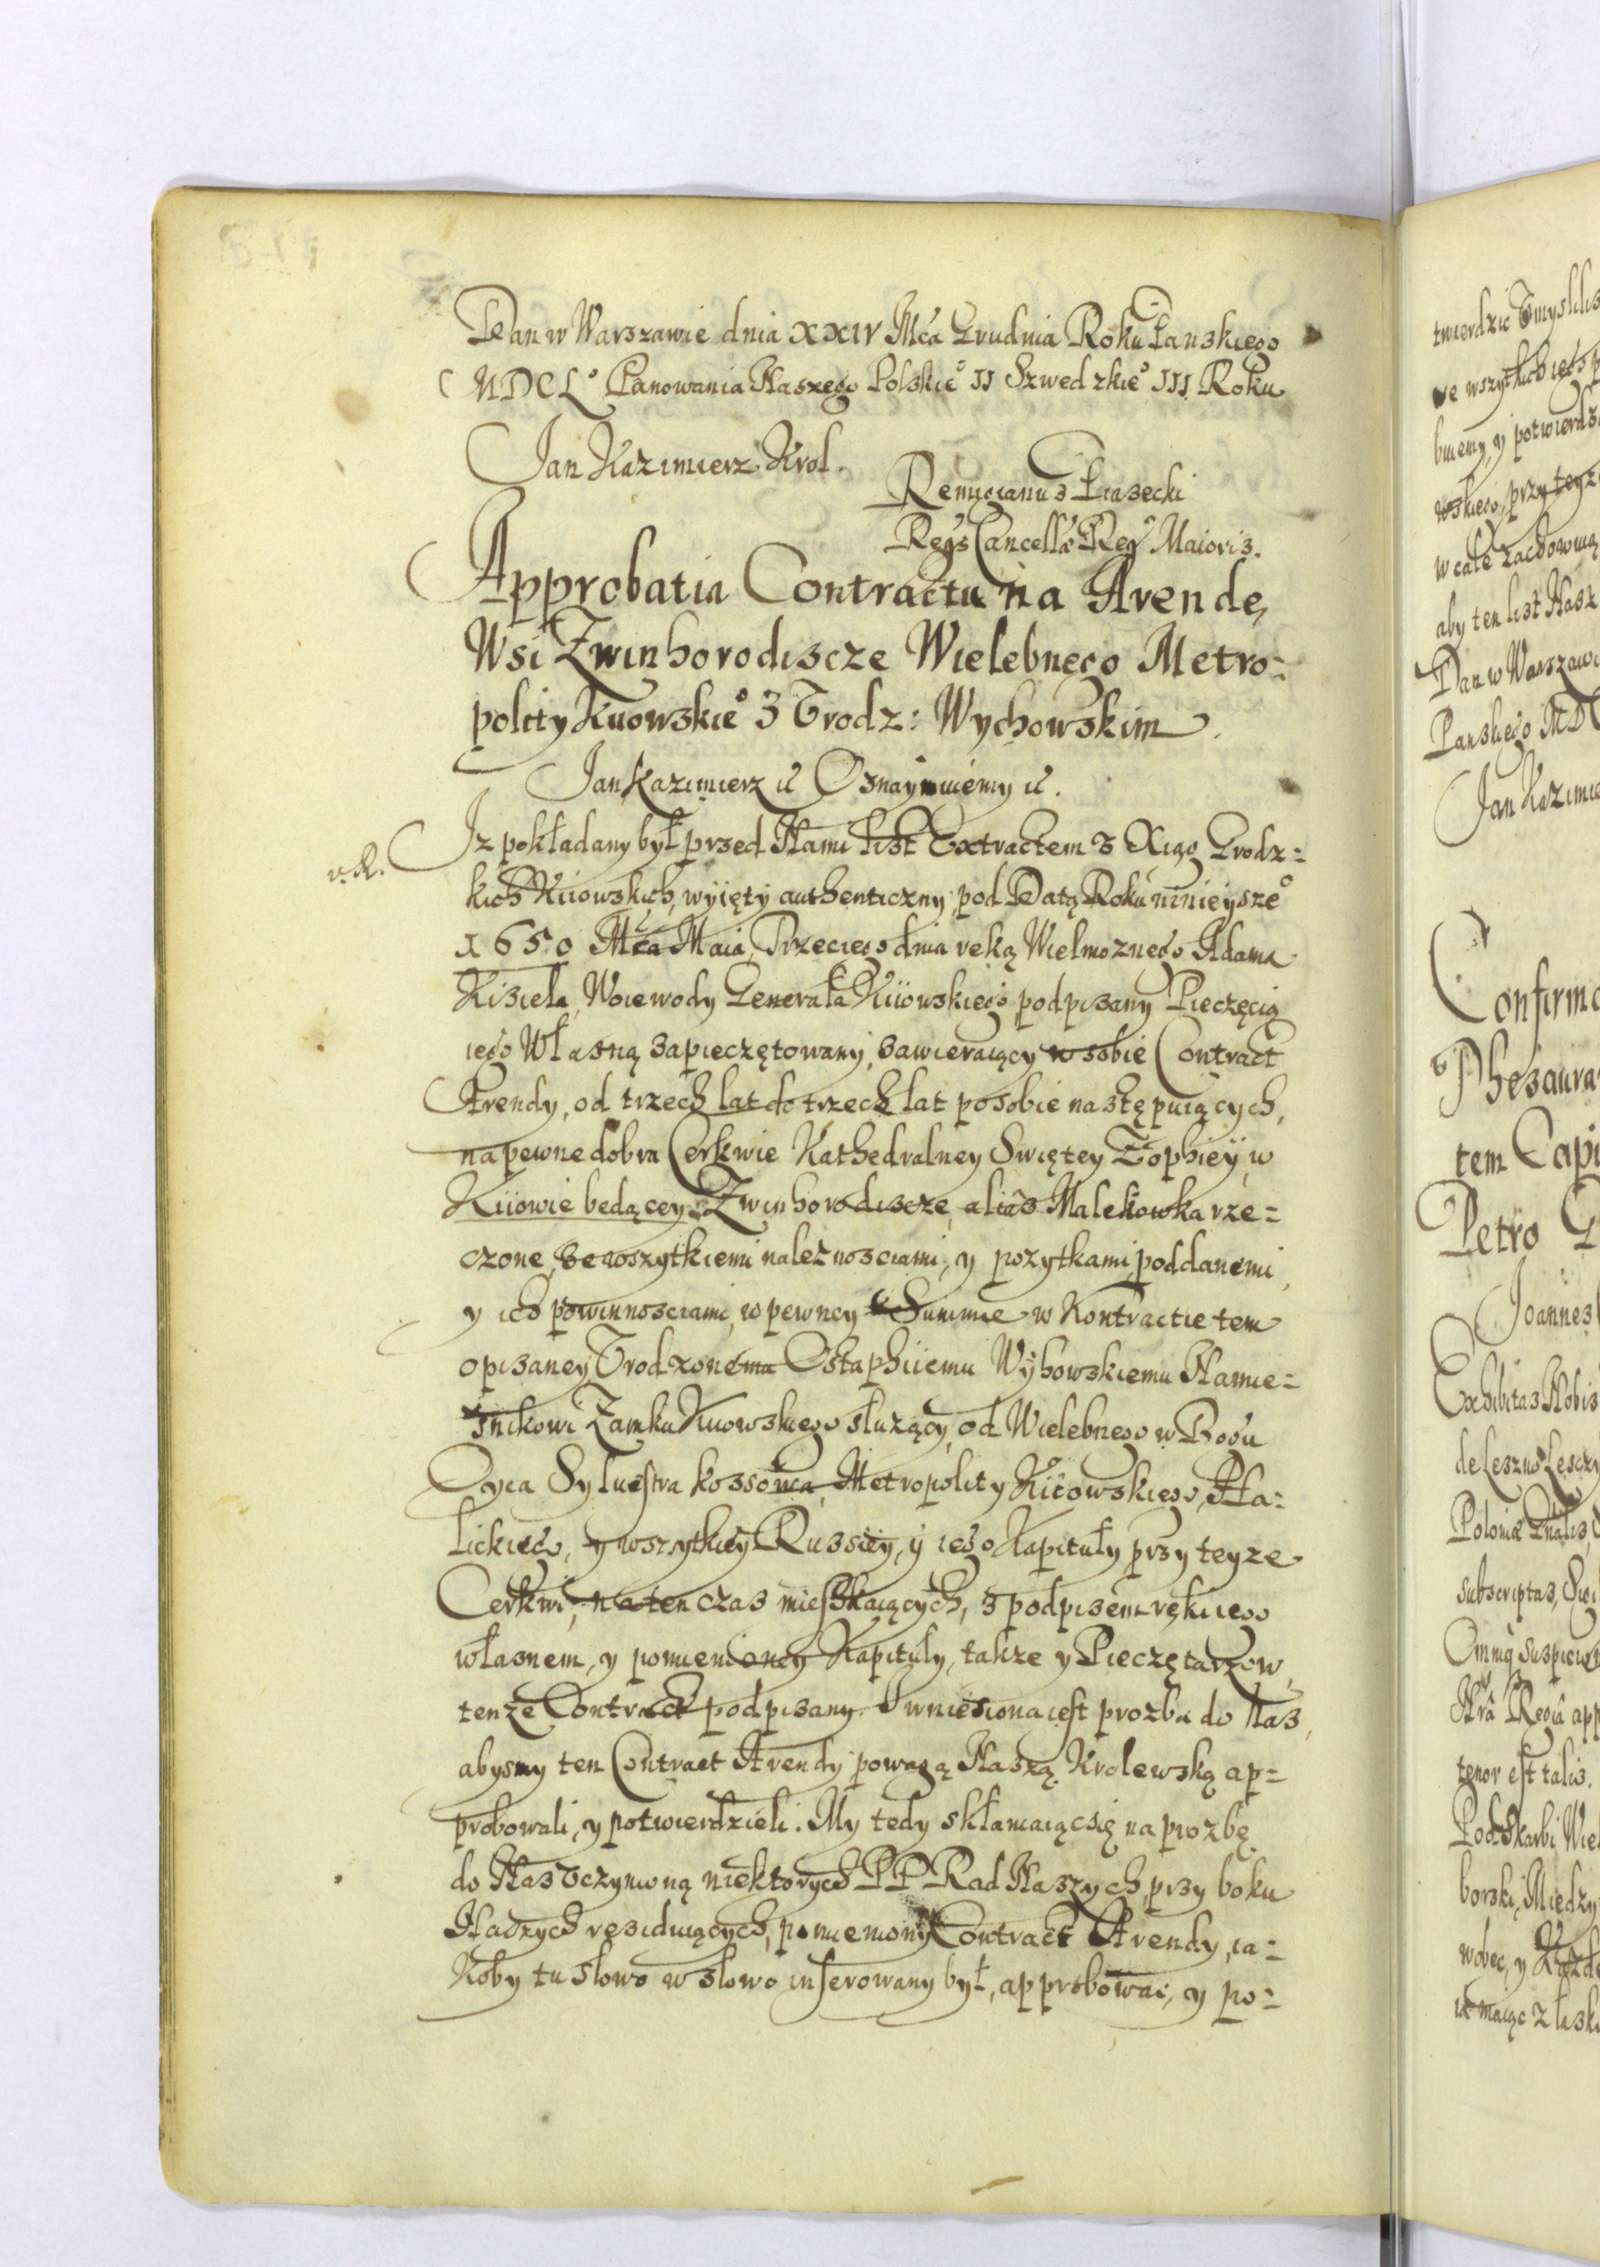 Dan w Warszawie dnia XXIV Mca Grudnia Roku Panskiego
MDCLo Panowania Naszego Polskieo II Szwedzkieo III Roku
Jan Kazimierz Krol.
Remigianus Piasecki
Regs Cancellæ Reg Maioris.
Approbatia Contractu na Arendę
Wsi Zwinhorodiscze Wielebnego Metro=
polity Kiiowskieo z Urodz: Wychowskim.
Jan Kazimierz etc Oznaymuiemy etc.
r. K.
Iz pokładany był przed Nami List Extractem z Xiąg Grodz=
kich Kiiowskich, wyięty authenticzny, pod Datą Roku ninieyszeo
1650 Mca Maia Trzeciego dnia ręką Wielmoznego Adama
Kisiela, Woiewody Generała Kiiowskiego podpisany Pieczęcią
iego Własną zapieczętowany, zawieraiący w sobie Contract
Arendy, od trzech lat do trzech lat po sobie nastẹpuiących,
na pewne dobra Cerkwie Kathedralney Swiętey Zophiey, w
Kiiowie będącey Zwinhorodiscze, alias Malekowka rze=
czone, ze wszytkiemi należnosciami, y pozytkami, poddanemi
y ich powinnosciami, w pewney Summie w Kontractie tem
opisaney Urodzonemu Ostaphiiemu Wyhowskiemu Namie=
snikowi Zamku Kiiowskiego słuzący, od Wielebnego w Bogu
Oyca Sylvestra Kossowa, Metropolity Kiiowskiego, Ha=
lickiego, y wszytkiey Russiey, y iego Kapituły przy teyze
Cerkwi, na ten czas mieszkaiących, z podpisem ręki iego
własnem, y pomienioney Kapituły, takze y Pieczętarzow,
tenże Contract podpisany. I wniesiona iest prozba do Nas,
abysmy ten Contract Arendy powagą Naszą Krolewską ap=
probowali, y potwierdzieli. My tedy skłaniaiąc się na prozbę
do Nas uczynioną niektorych PP Rad Naszych, przy boku
Naszych residuiących, pomieniony Contract Arendy, ia=
koby tu słowo w słowo inserowany był, approbować, y po=
twierdzić Umyslilis
we wszytkich iego p
buiemy, y potwierdza
wskiego, przy teyze
w cale zachowuią
aby ten list Nasz
Dan w Warszawi
Panskiego MD
Jan Kazimie
Confirma
Thesaura
tem Capi
Petro G
Joannes
Exhibitas Nobis
de Leszno Lesczy
Poloniæ
subscriptas, Sigi
Omniq Suspicion
Ntra Regia app
tenor est talis.
Podskarbi Wiel
borski, Między
wobec, y Kożde
iz maiąc z łaski